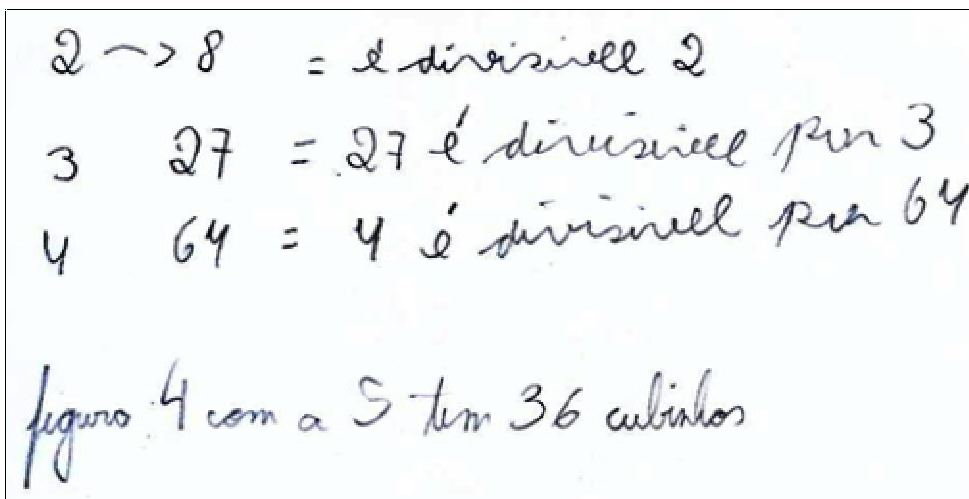 2 → 8 = é divisivell 2
3 27 = 27 é divisivel por 3
4 64 = 4 é divisivell por 64
figura 4 com a 5 tem 36 cubinhos